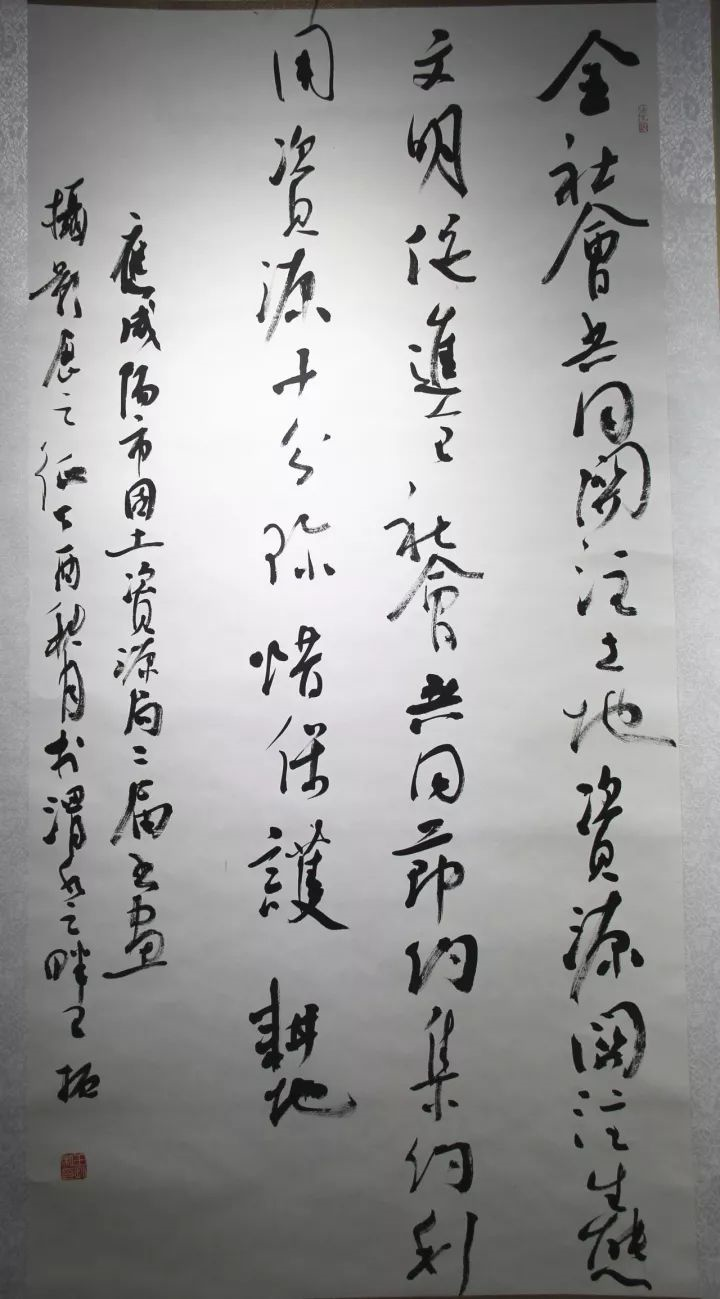 全社會共同関注土地資源関注生態
文明促進全社會共同節約集約利
用資源十分珍惜保護耕地
應咸陽市国土資源局二届書画
攝影展之征丁酉秋月於渭水之畔王振